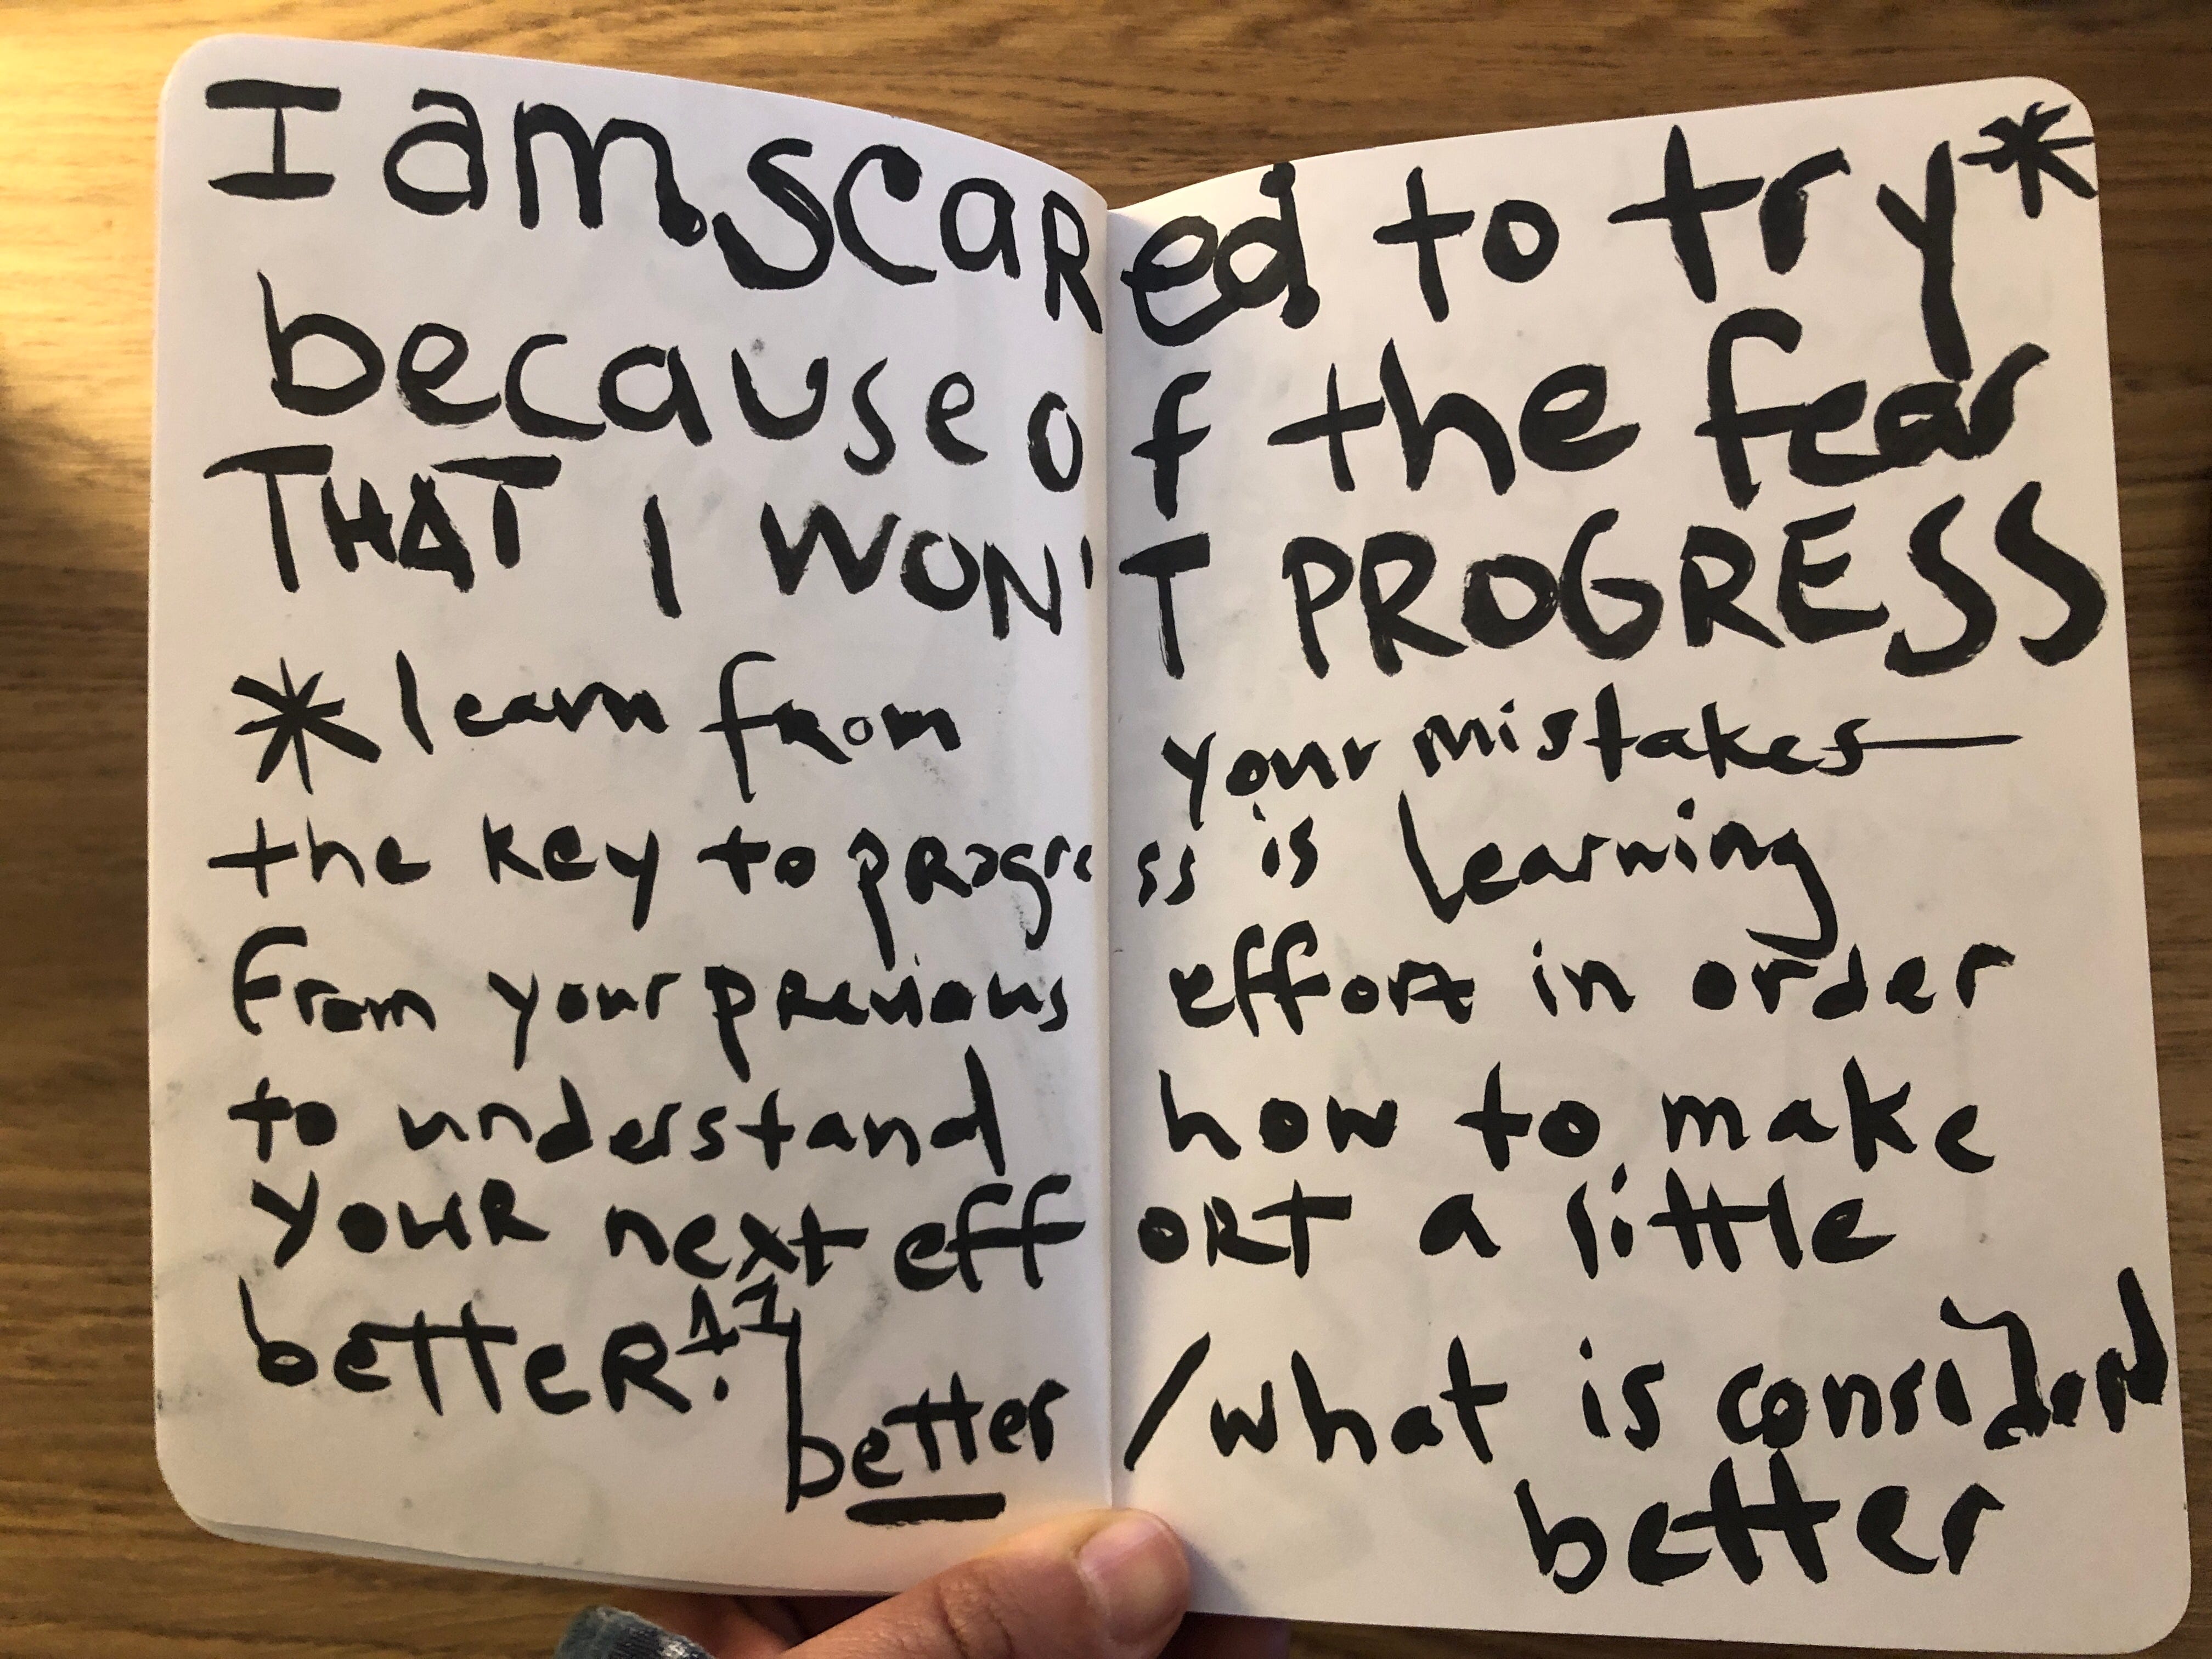 I am scaRed to try*
because of the fear
THAT I WON'T PROGRESS
* learn from your mistakes—
the key to progress is learning
from your previous effort in order
to understand how to make
YOUR next effORT a little
betteR.
better / what is considerd
better